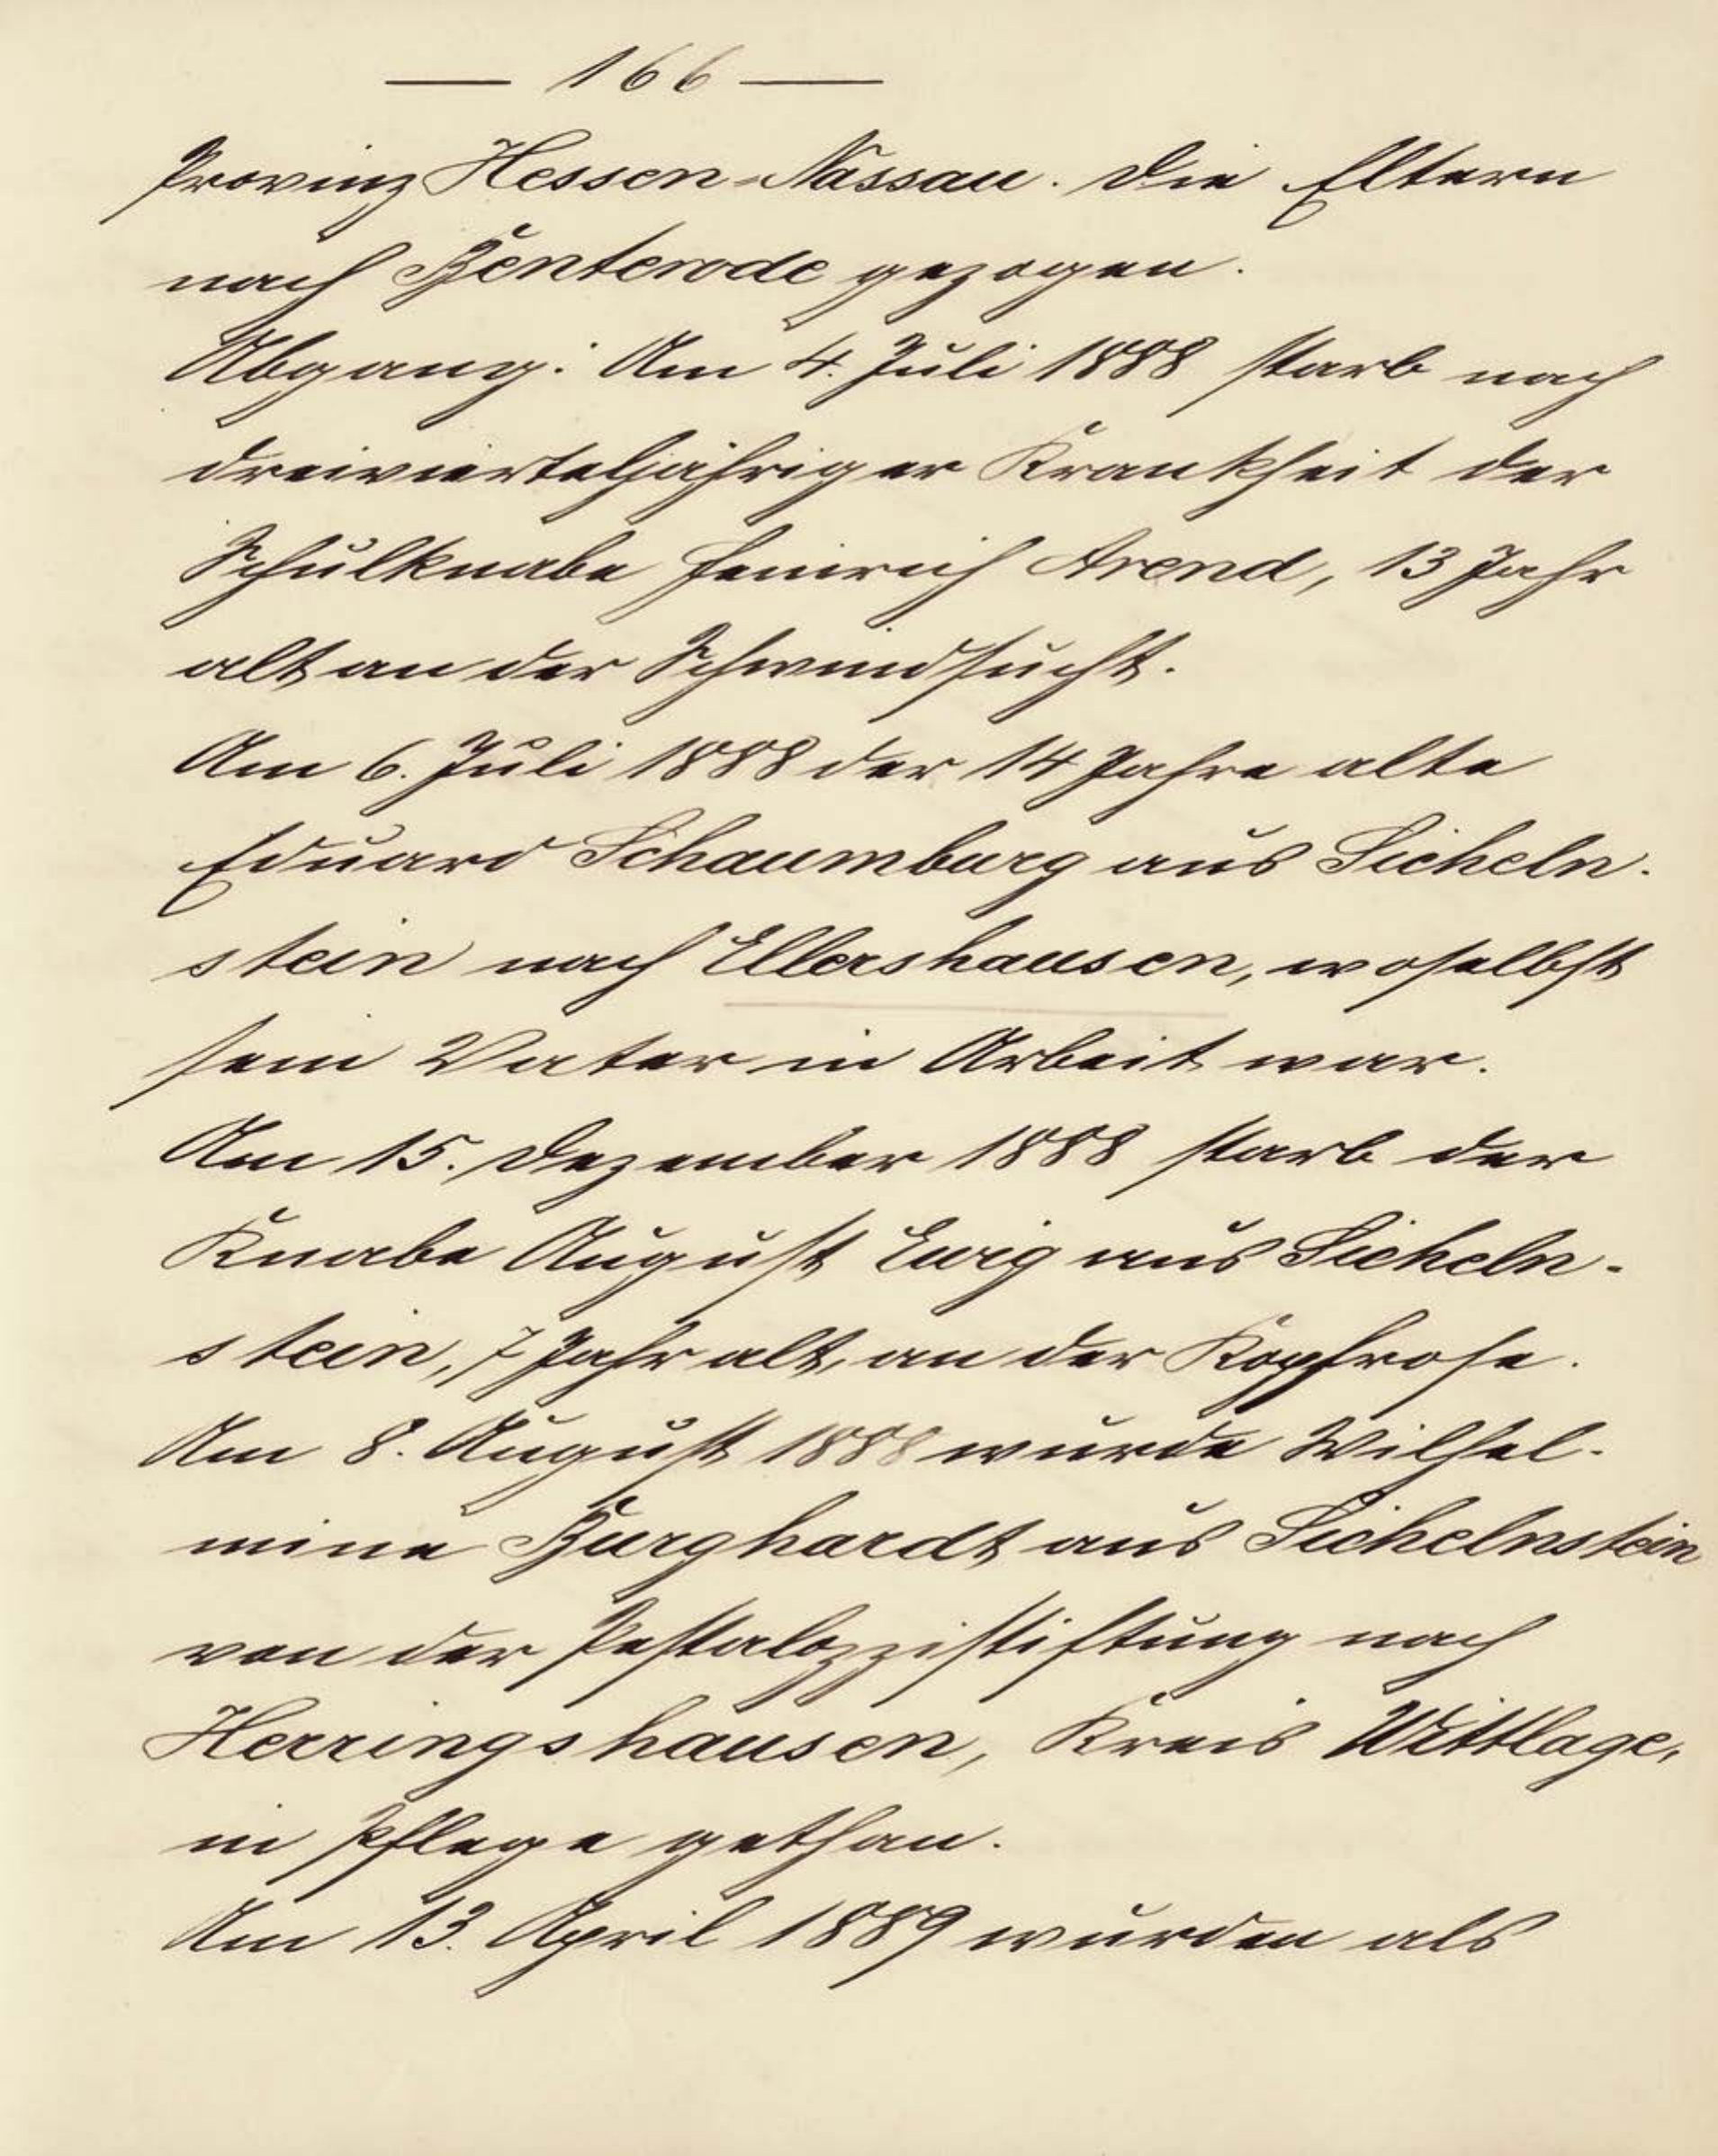 — 166 —
Provinz Hessen-Nassau. Die Eltern
nach Benterode gezogen.
Abgang: Am 4. Juli 1888 starb nach
dreivierteljähriger Krankheit der
Schulknabe Heinrich Arend, 13 Jahr
alt an der Schwindsucht.
Am 6. Juli 1888 der 14 Jahre alte
Eduard Schaumburg aus Sicheln-
stein nach Ellershausen, woselbst
sein Vater in Arbeit war.
Am 15. Dezember 1888 starb der
Knabe August Ewig aus Sicheln-
stein, 7 Jahr alt, an der Kopfrose.
Am 8. August 1888 wurde Wilhel-
mine Burghardt aus Sichelnstein
von der Pestalozzistiftung nach
Herringshausen, Kreis Wittlage,
in Pflege gethan.
Am 13. April 1889 wurden als